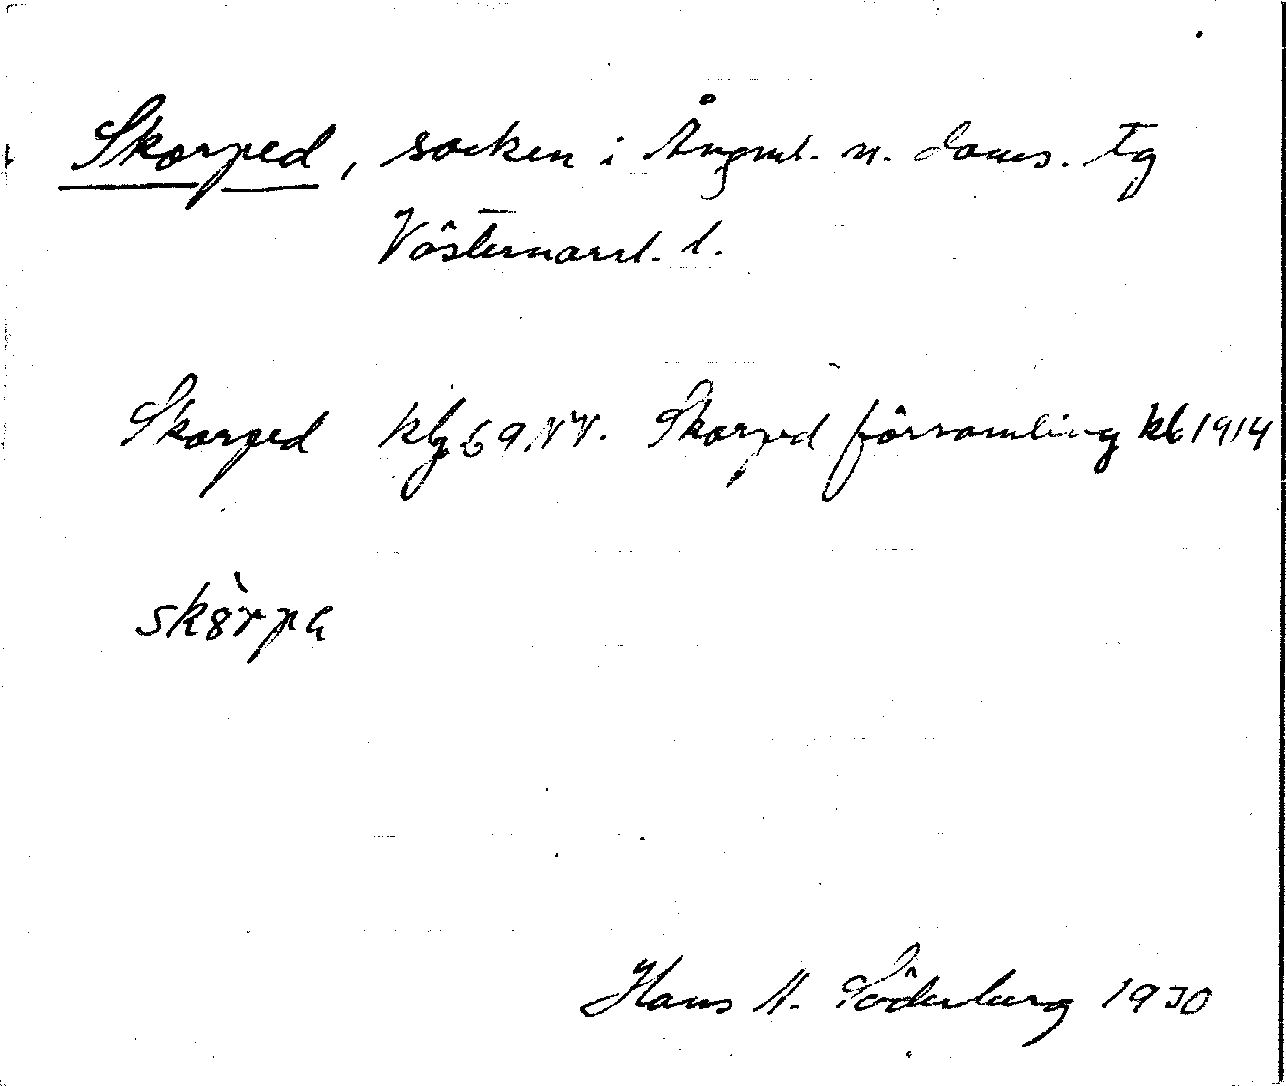 Skorped, socken i Ångml. n. doms. tg
Västernorrl. l.
Skorped kbg 69.NV. Skorped församling kb 1914
skȯ̀rpa
Hans A. Söderberg 1930